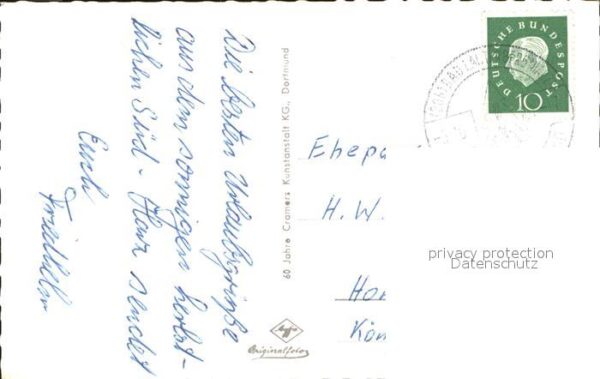 Die besten Urlaubsgrüße
aus dem sonnigen herbst-
lichen Süd-Harz sendet
Euch
Friedhelm
60 Jahre Cramers Kunstanstalt KG., Dortmund
Agfa
Originalfoto
DEUTSCHE BUNDESPOST
10
Ehepa
H. W.
Ho
Kön
privacy protection
Datenschutz